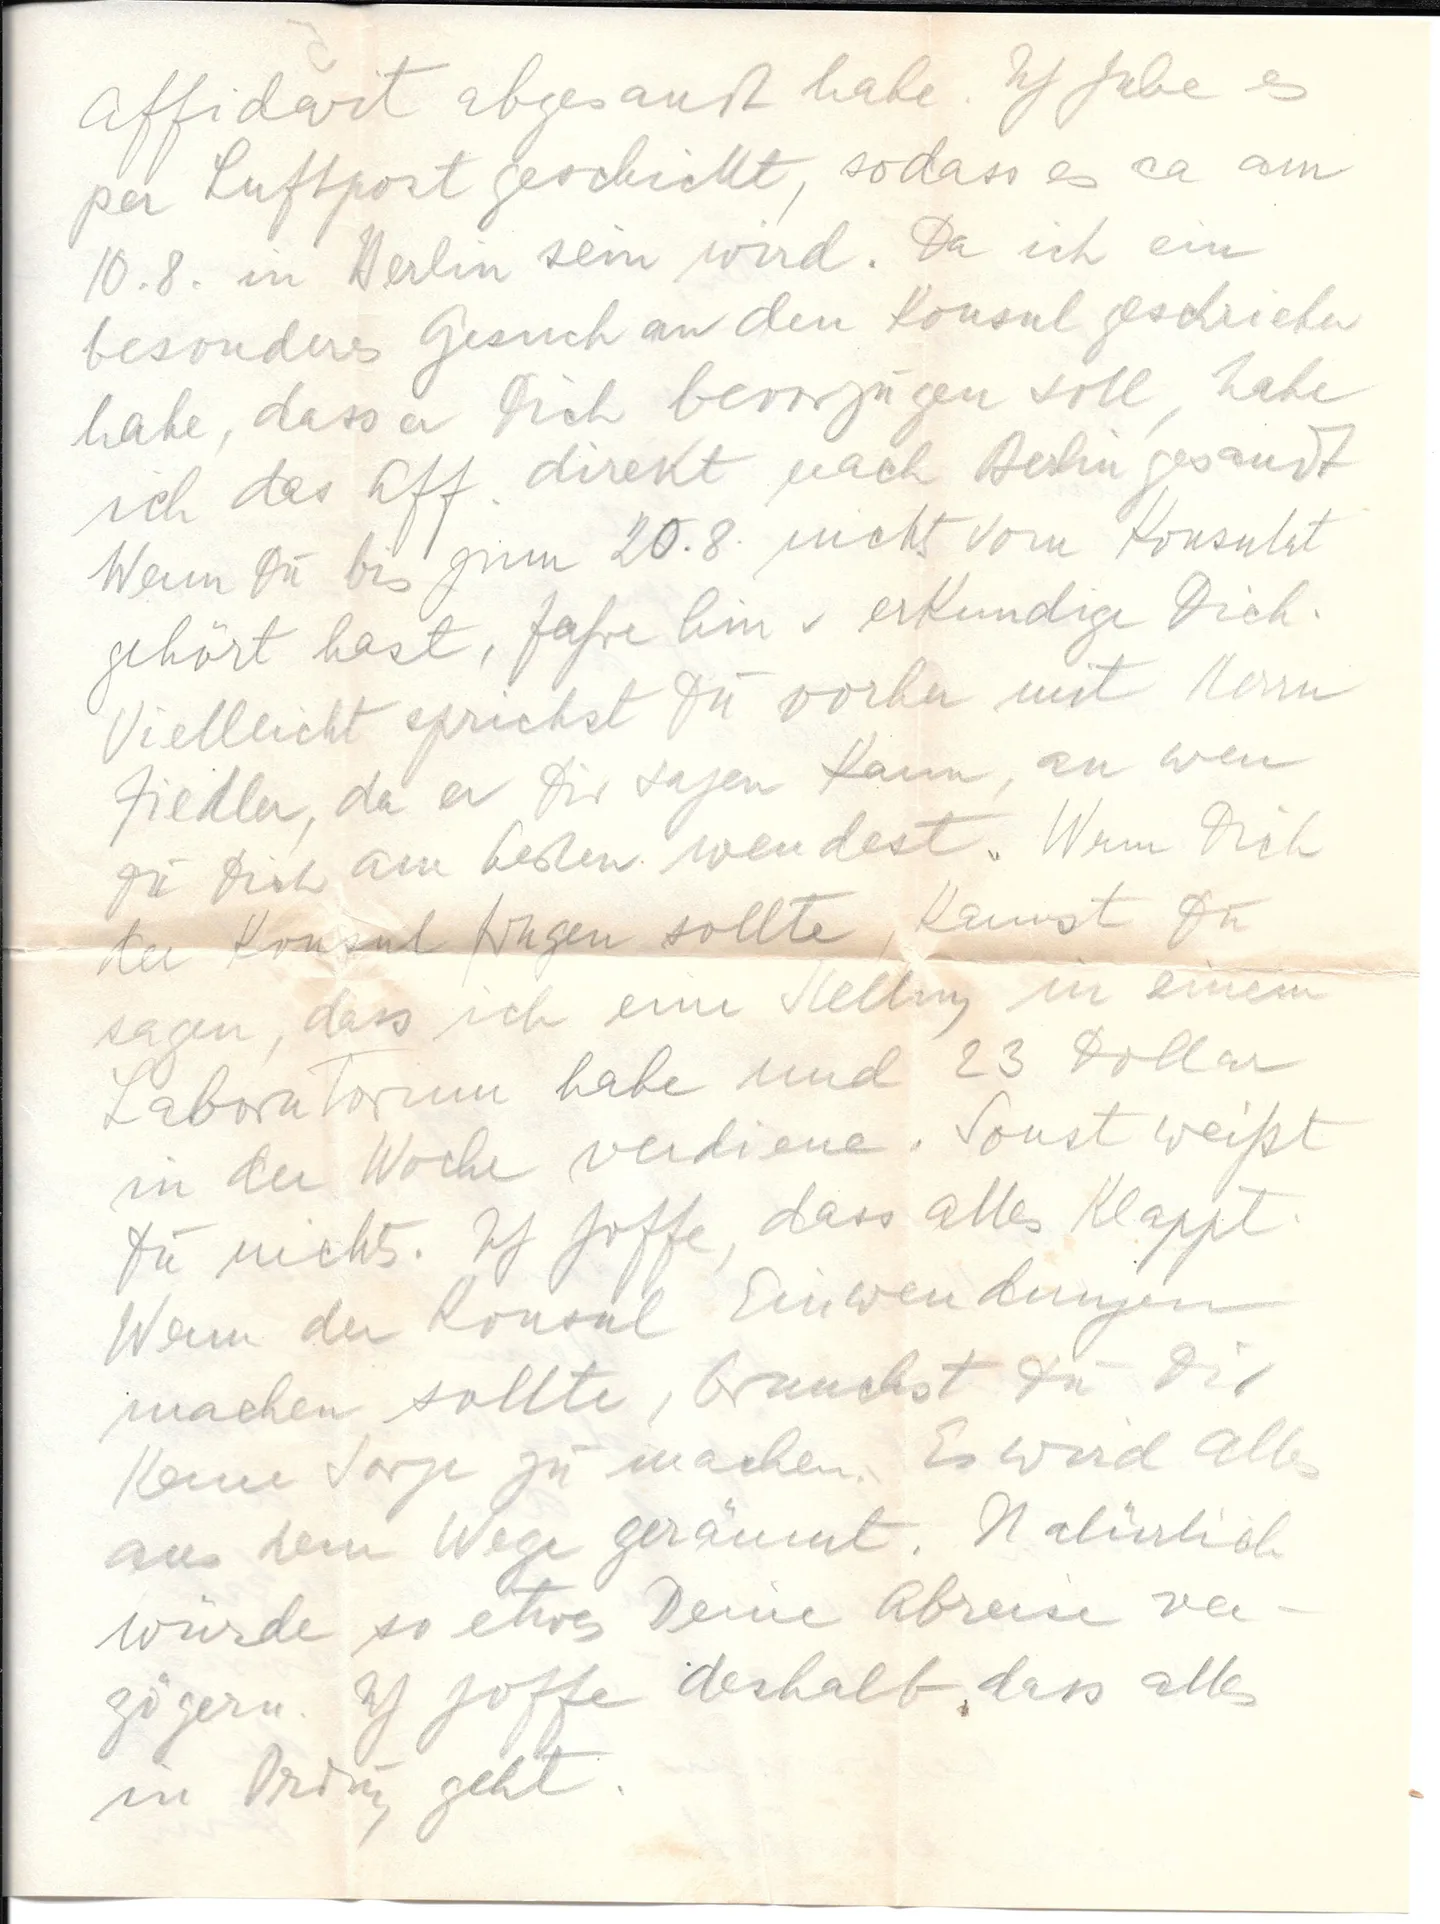 Affidavit abgesandt habe. Ich habe es
per Luftpost geschickt, sodass es ca am
10.8. in Berlin sein wird. Da ich ein
besonderes Gesuch an den Konsul geschrieben
habe, dass er Dich bevorzugen soll, habe
ich das Aff. direkt nach Berlin gesandt
Wenn Du bis zum 20.8. nichts vom Konsulat
gehört hast, fahre hin u erkundige Dich.
Vielleicht sprichst Du vorher mit Herrn
Fiedler, da er Dir sagen kann, an wen
Du Dich am besten wendest. Wenn Dich
der Konsul fragen sollte, kannst Du
sagen, dass ich eine Stellung in einem
Laboratorium habe und 23 Dollar
in der Woche verdiene. Sonst weißt
Du nichts. Ich hoffe, dass alles klappt.
Wenn der Konsul Einwendungen
machen sollte, brauchst Du Dir
keine Sorge zu machen. Es wird alles
aus dem Wege geräumt. Natürlich
würde so etwas Deine Abreise ver-
zögern. Ich hoffe deshalb, dass alles
in Ordnung geht.